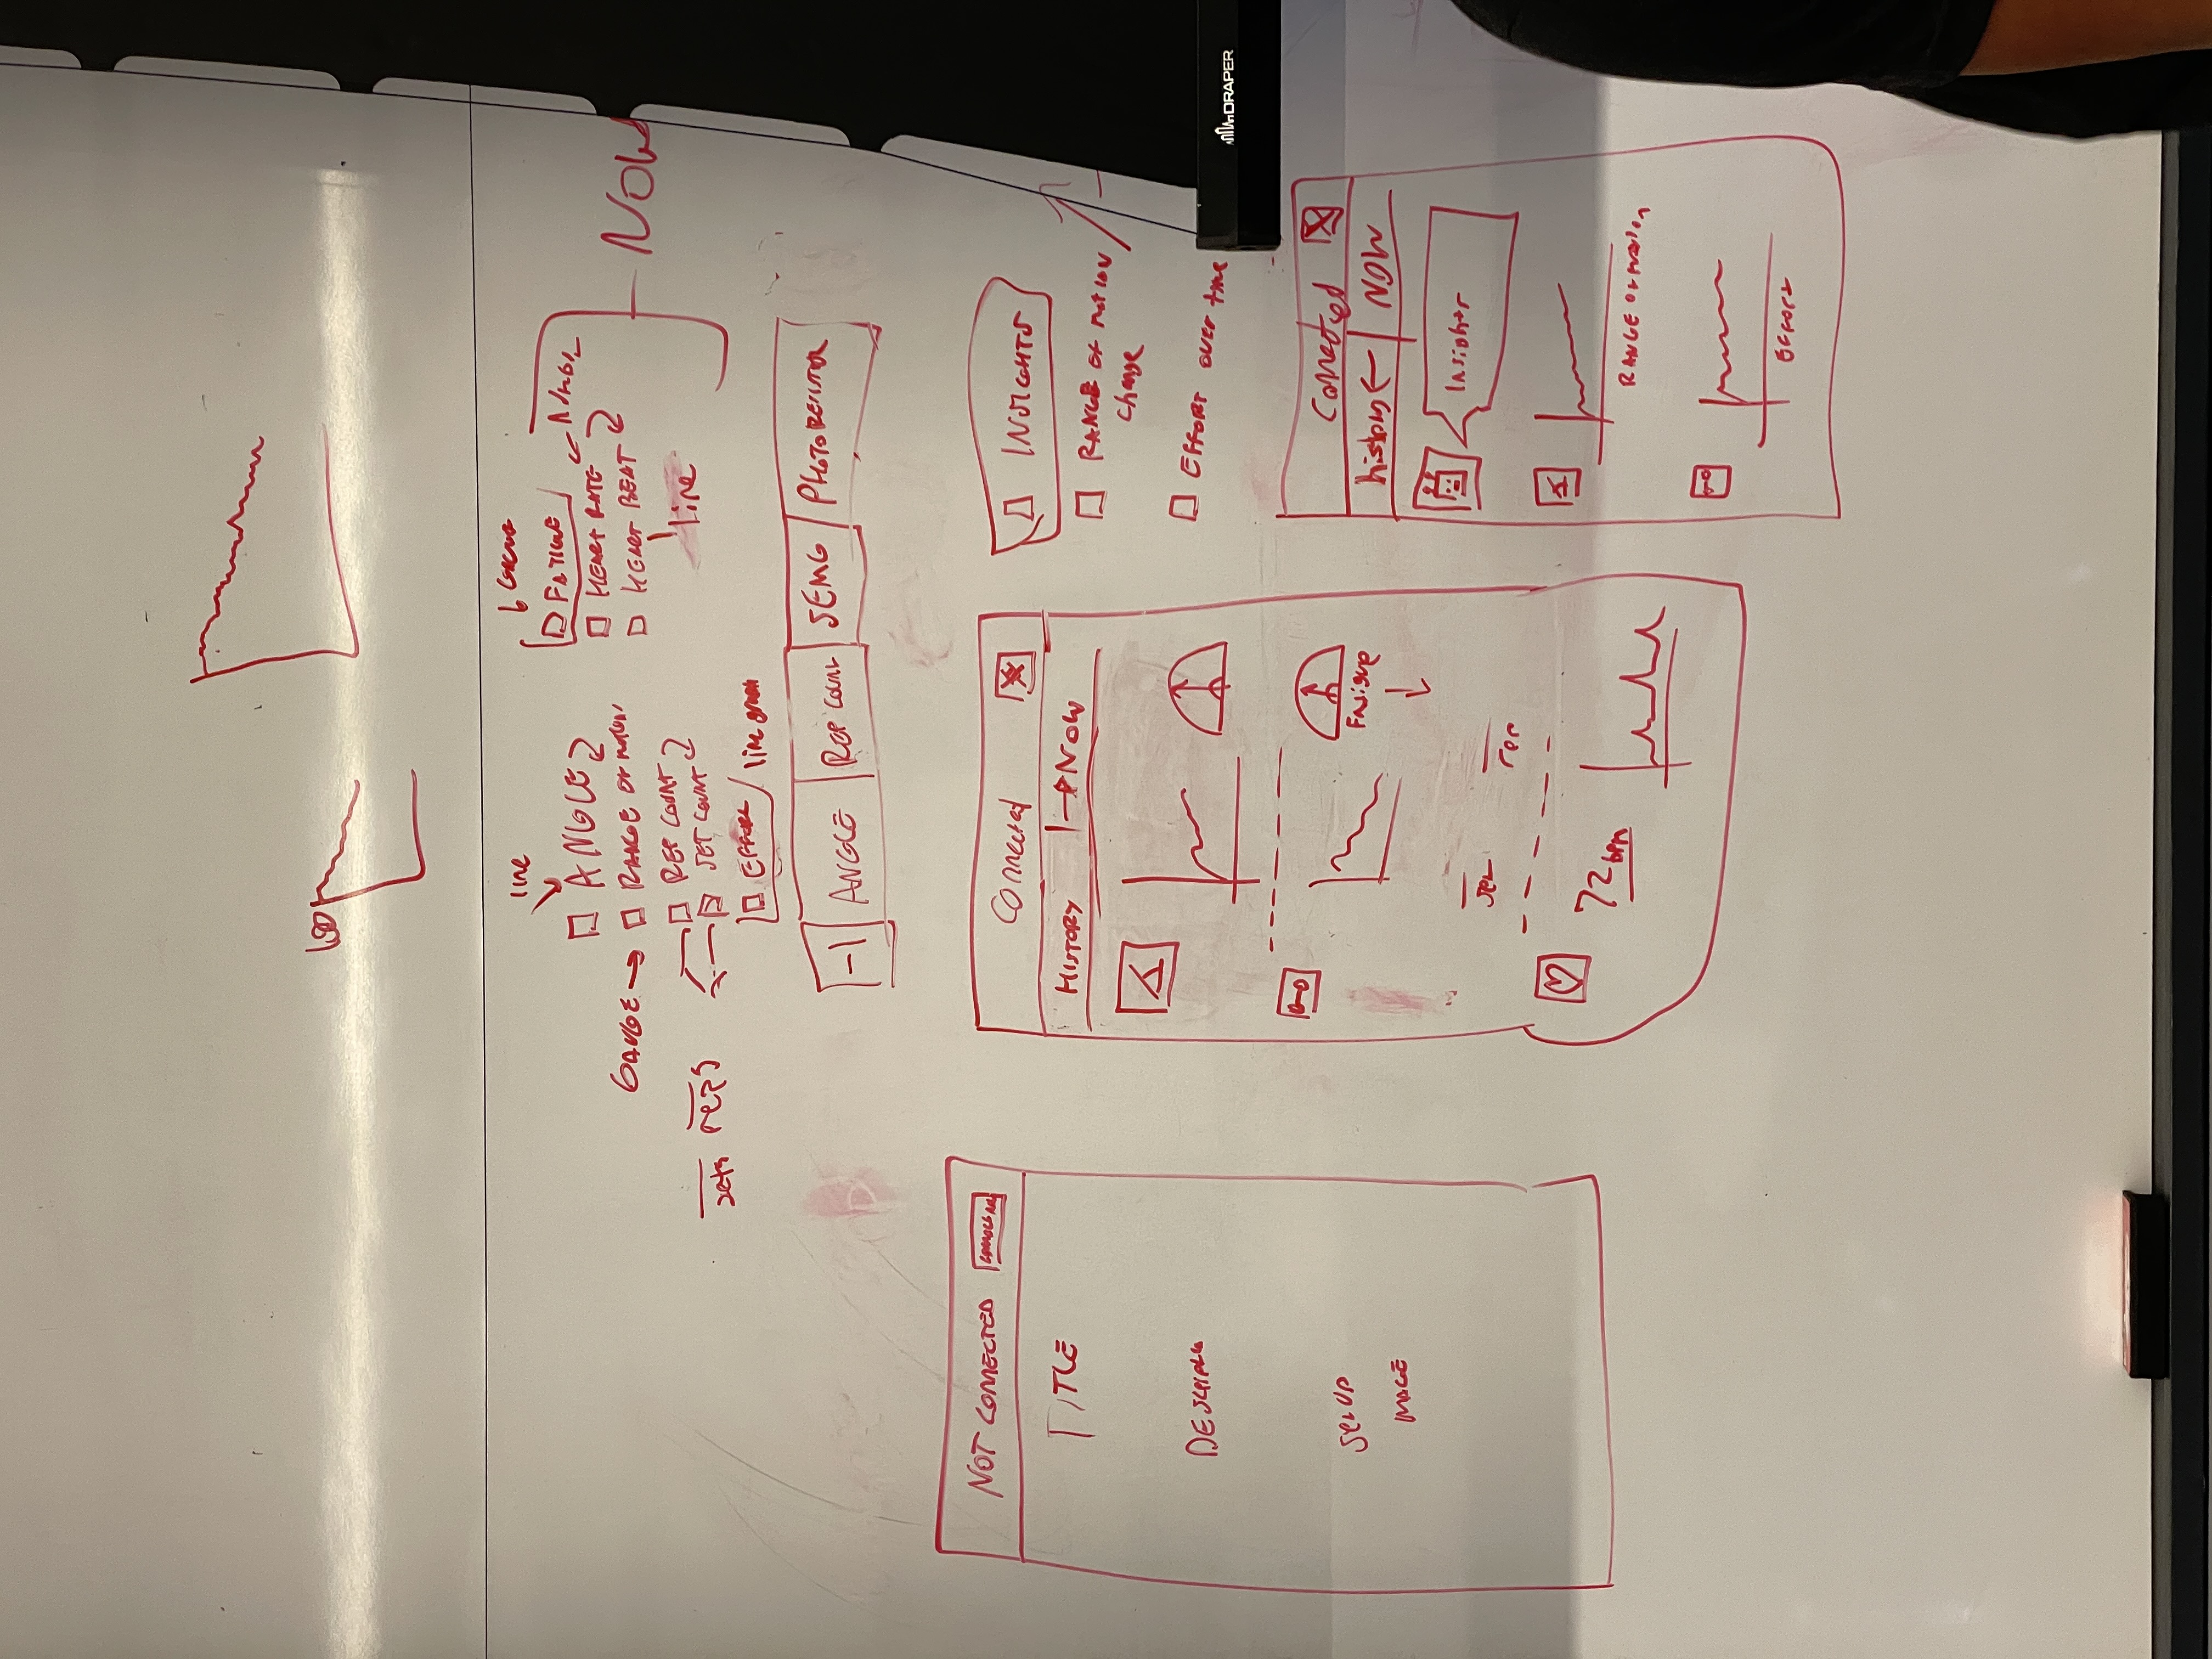 line
ANGLE
GAUGE → RANGE OF MOTION
REP COUNT
SET COUNT
sets reps
EFFORT
line graph
FATIGUE
HEART RATE
HEART BEAT
line
NOW
-1 ANGLE REP COUNT SEMG PHOTORESISTOR
NOT CONNECTED
TITLE
SETUP
IMAGE
Connected X
HISTORY → NOW
Fatigue
set
rep
72 bpm
INSIGHTS
RANGE OF MOTION
change
EFFORT OVER time
DRAPER
Connected X
history ← NOW
Insights
RANGE OF MOTION
EFFORT